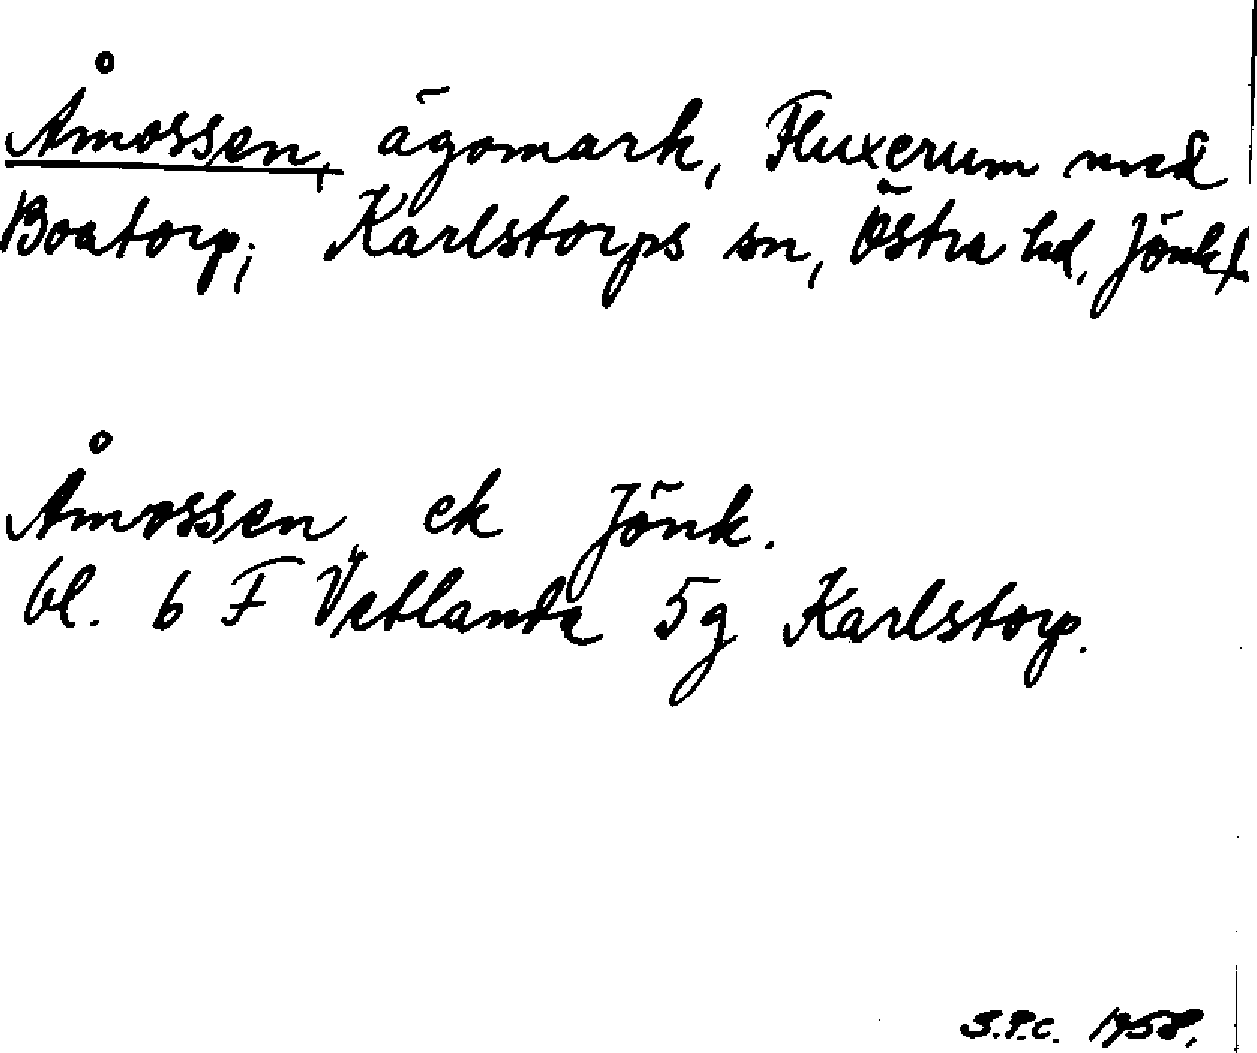 Åmossen, ägomark, Fluxerum med
Boatorp; Karlstorps sn, Östra hd, Jönk l.
Åmossen ek Jönk.
bl. 6 F Vetlanda 5g Karlstorp.
S.P.C. 1958.